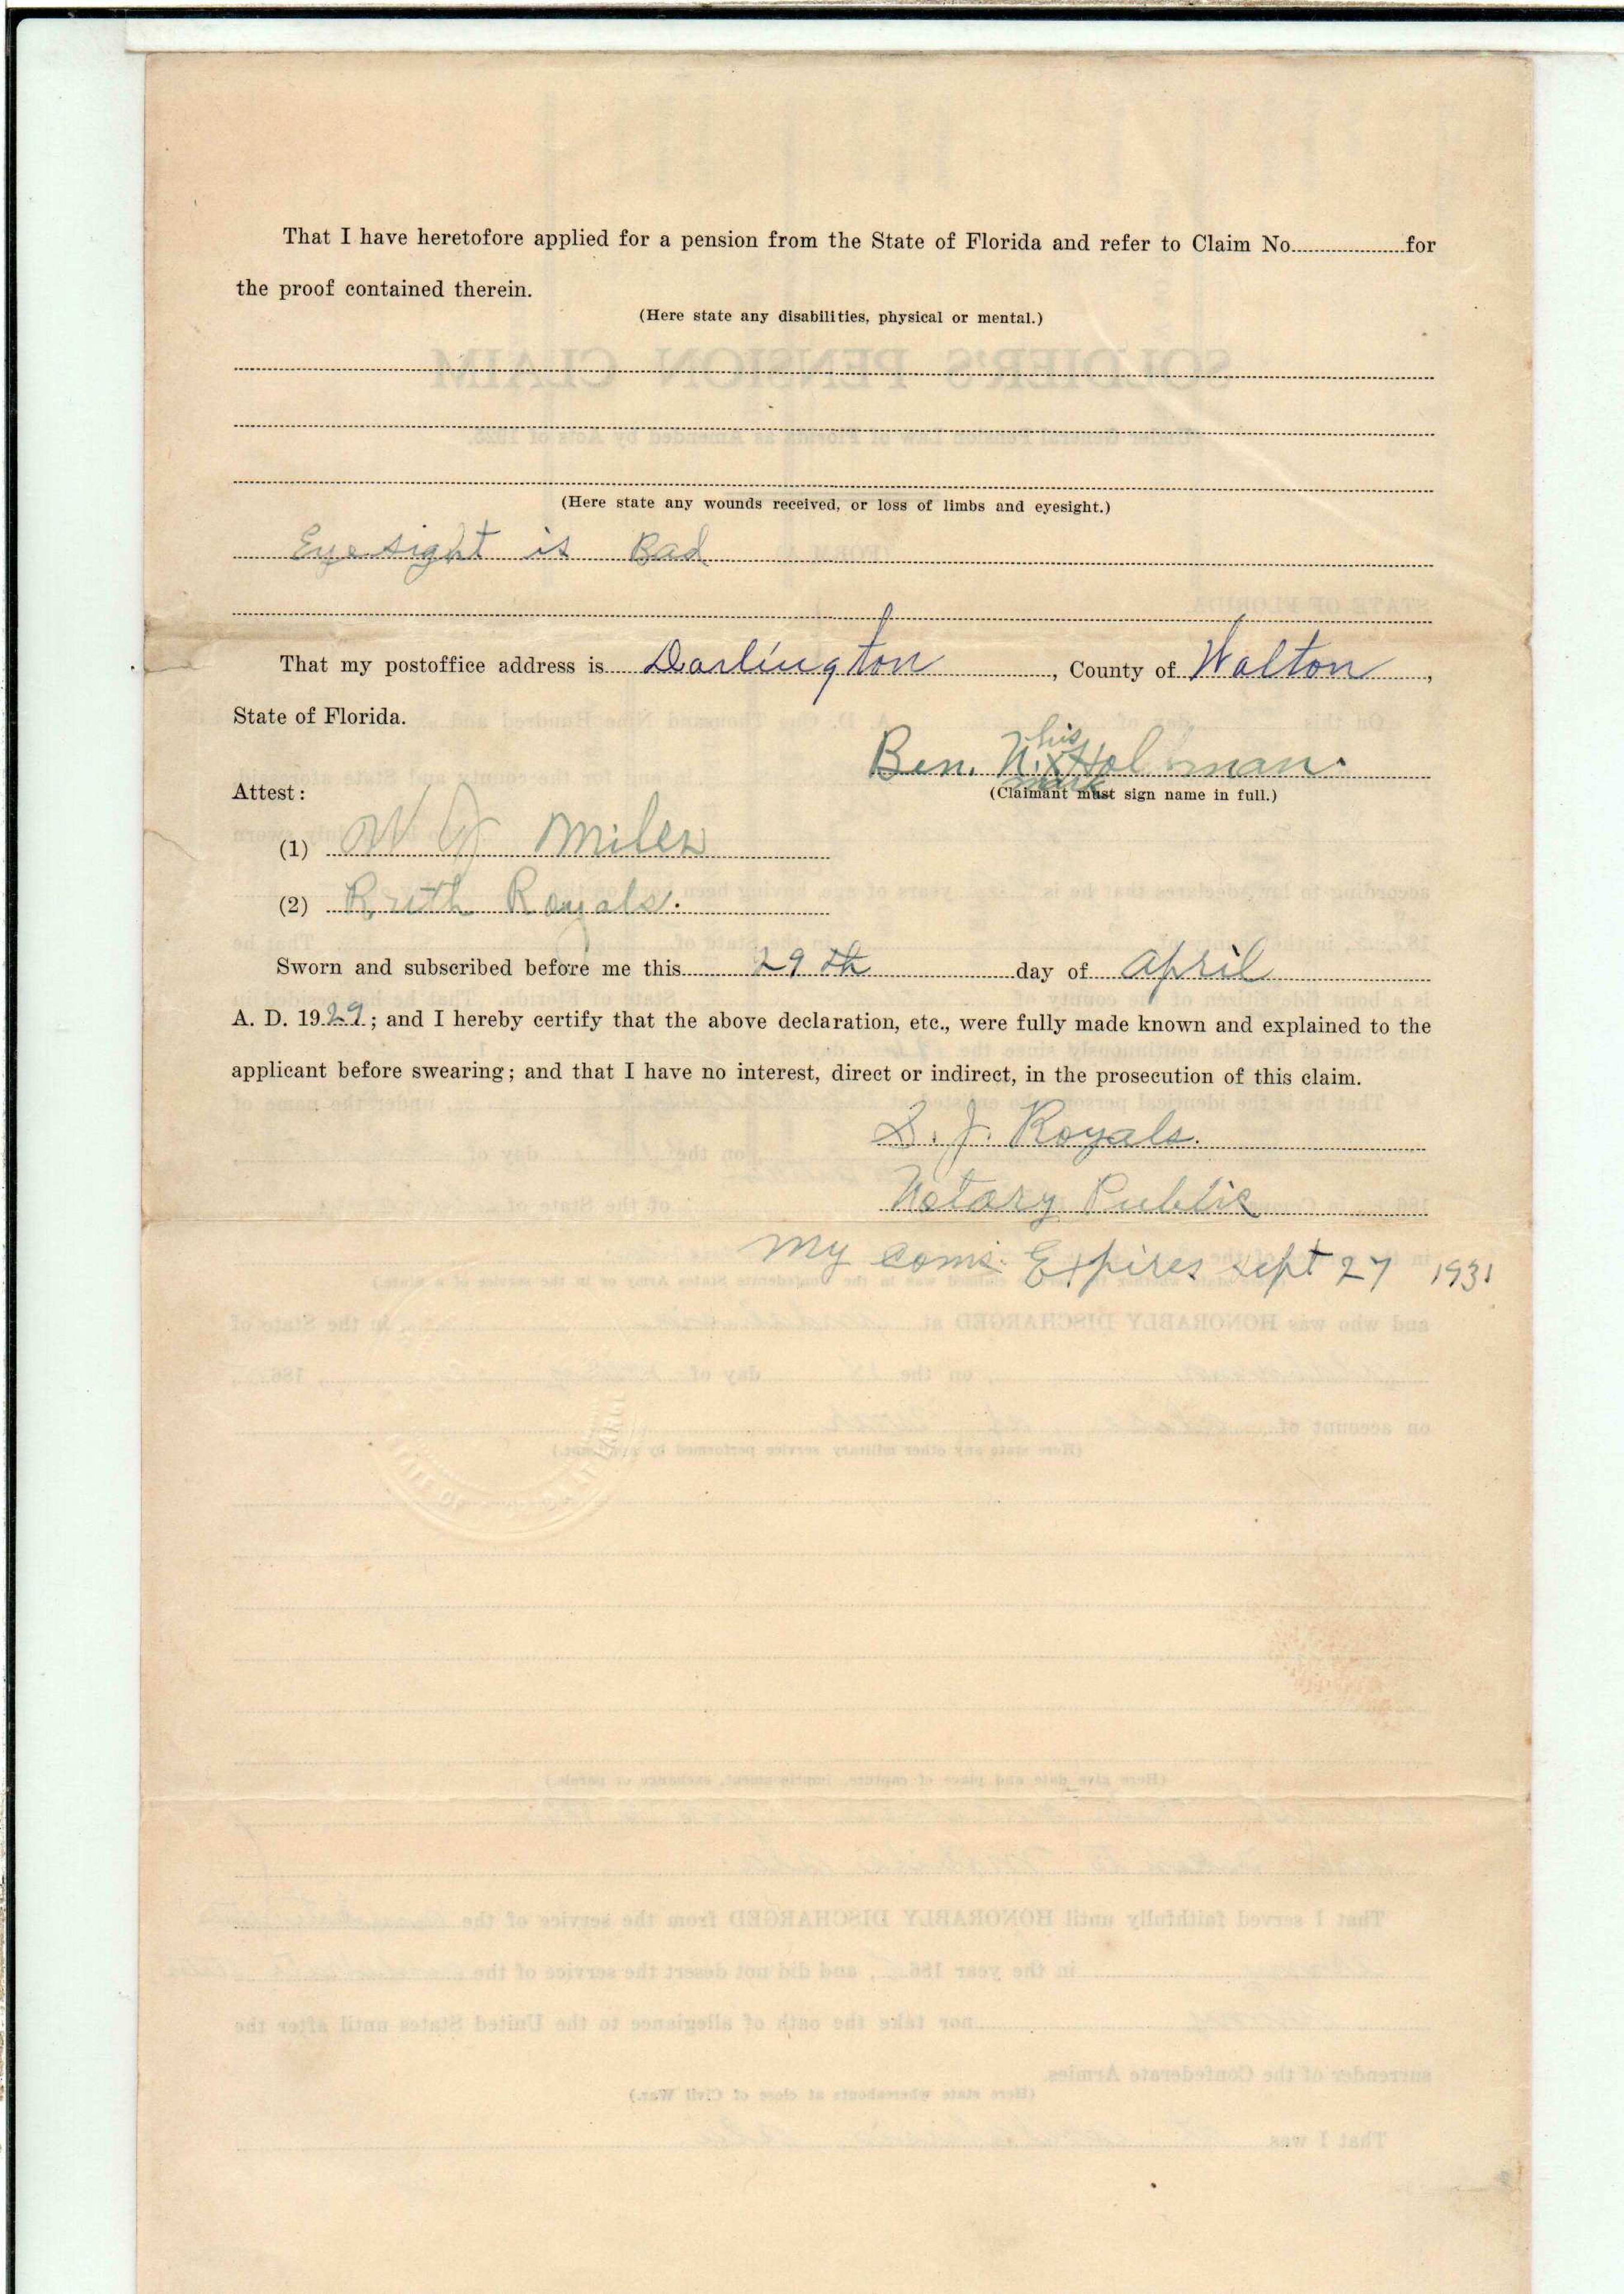 That I have heretofore applied for a pension from the State of Florida and refer to Claim No..................for
the proof contained therein.
(Here state any disabilities, physical or mental.)
(Here state any wounds received, or loss of limbs and eyesight.)
Eyesight is Bad
That my postoffice address is Darlington, County of Walton,
State of Florida.
his
Ben. N. X Holsman.
mark
(Claimant must sign name in full.)
Attest:
(1) W J Miles
(2) Ruth Royals.
Sworn and subscribed before me this 29th day of April
A. D. 1929; and I hereby certify that the above declaration, etc., were fully made known and explained to the
applicant before swearing; and that I have no interest, direct or indirect, in the prosecution of this claim.
S. J. Royals.
Notary Public
My Com. Expires Sept 27 1931